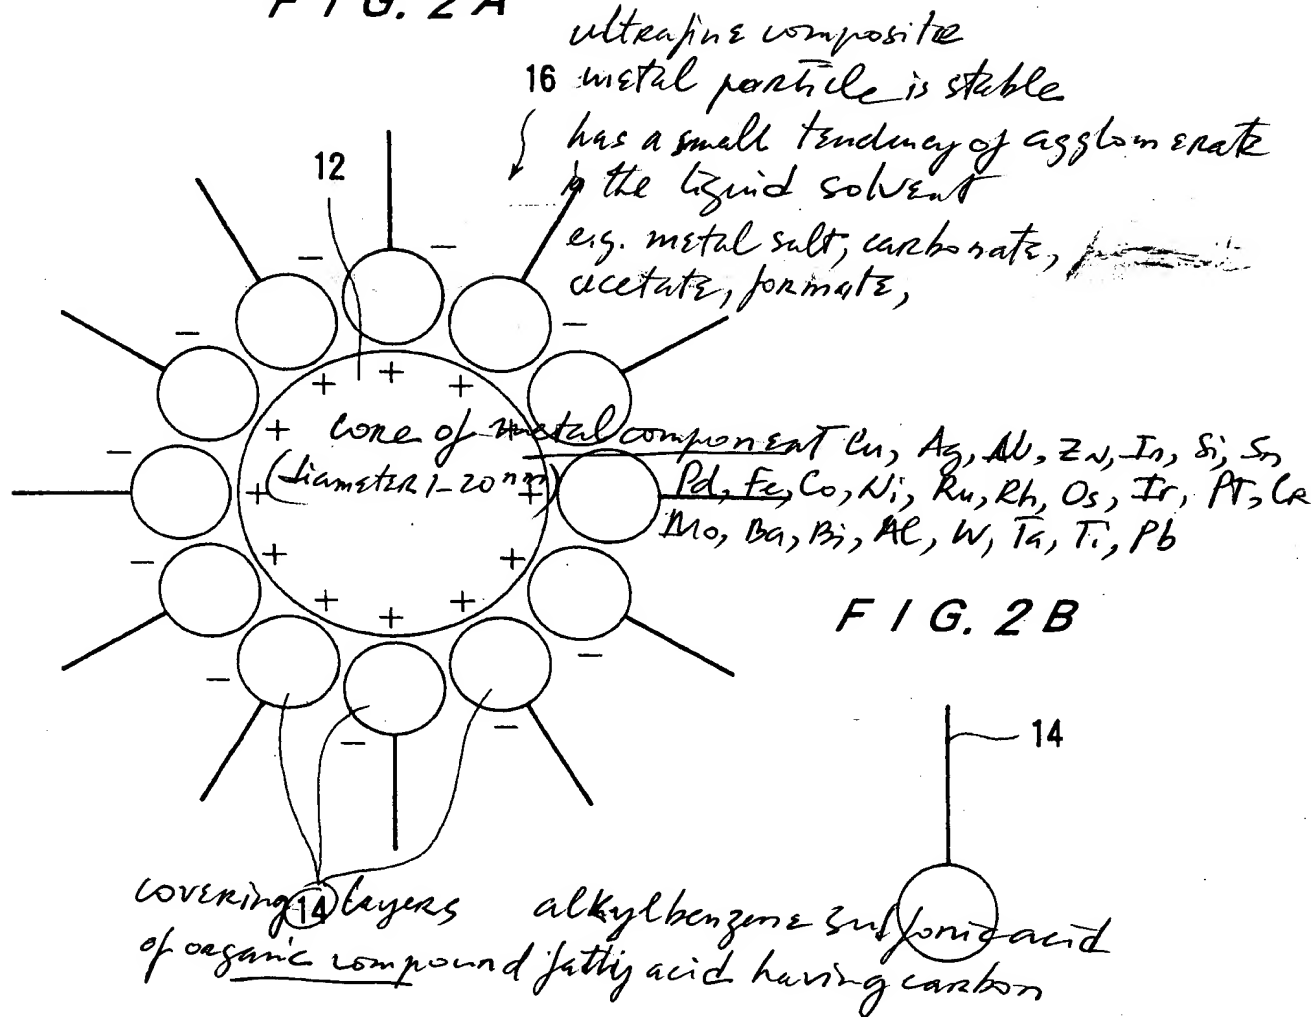 FIG. 2A
ultrafine composite
16 metal particle is stable
has a small tendency of agglomerate
in the liquid solvent
e.g. metal salt, carbonate,
acetate, formate,
12
− − − − − − − − − −
+ + + + + + + + + + + +
core of metal component Cu, Ag, Au, Zn, In, Si, Sn
(diameter 1-20 nm) Pd, Fe, Co, Ni, Ru, Rh, Os, Ir, PT, CR
Mo, Ba, Bi, Al, W, Ta, Ti, Pb
FIG. 2B
14
covering 14 layers alkylbenzene sulfonic acid
of organic compound fatty acid having carbon